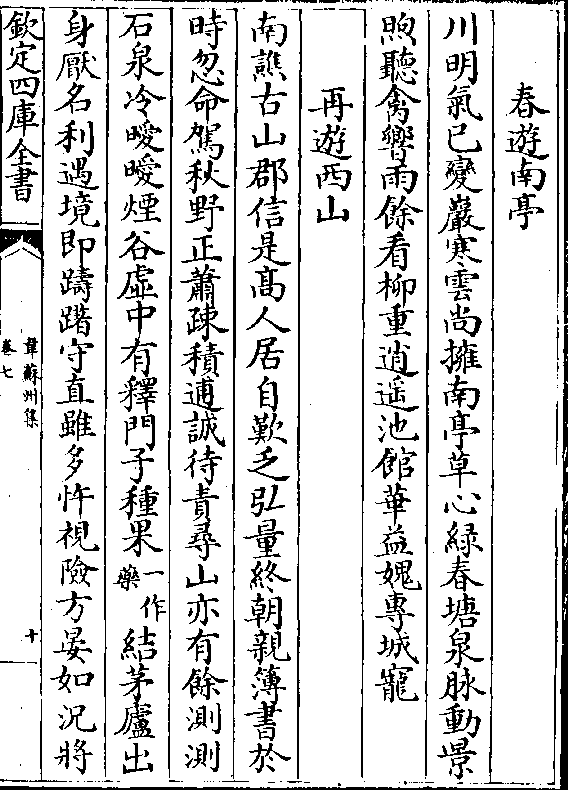 春遊南亭
川明氣已變巖寒雲尚擁南亭草心緑春塘泉脉動景
煦聽禽響雨餘看柳重逍遥池館華益媿專城寵
再遊西山
南譙古山郡信是髙人居自歎乏弘量終朝親簿書於
時忽命駕秋野正蕭踈積逋誠待責尋山亦有餘測測
石泉冷曖曖煙谷虚中有釋門子種果一作藥結茅廬出
身厭名利遇境即躊躇守直雖多忤視險方晏如況將
欽定四庫全書
韋蘇州集
卷七
十